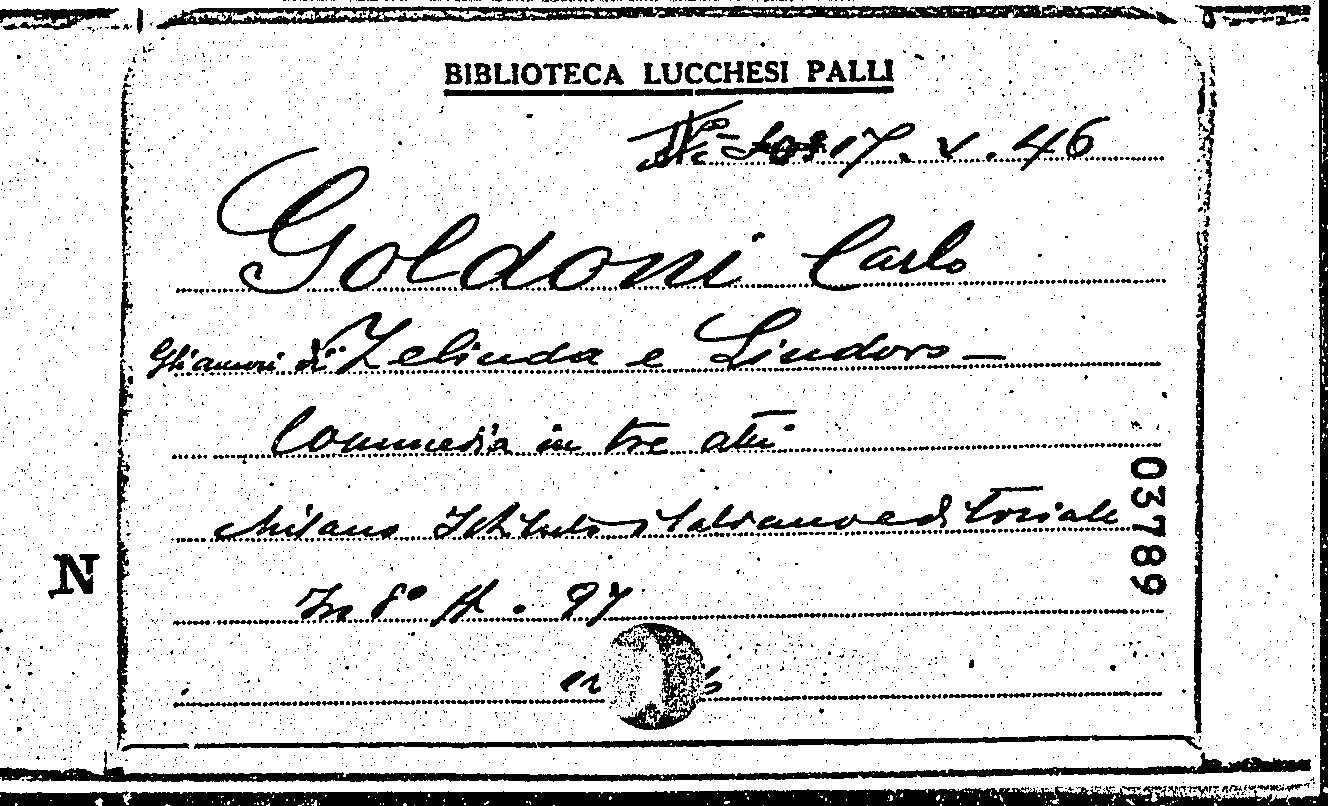 BIBLIOTECA LUCCHESI PALLI
17. V. 46
Goldoni Carlo
Gli amori di Zelinda e Lindoro —
Commedia in tre atti
Milano Istituto italiano editoriale
In 8° pp. 97
03789
N